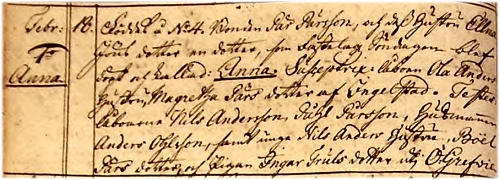 Febr: 18. Föddes u N:4. Bonden Pär Pärsson, och des Hustru Elna
Jöns dotter en dotter, som Fastelags Söndagen blef
Anna döpt och kallad: Anna. Susceptrix: Åboen Ola Anders
Hustru, Magretha Pärs dotter af Ingelstad. Testes
Åboarne Nils Andersson, Påhl Pärsson, Husmannen
Anders Ohlsson, samt unge Nils Anders Hustru, Boel
Pärs dotter och Pigan Ingar Truls dotter utj